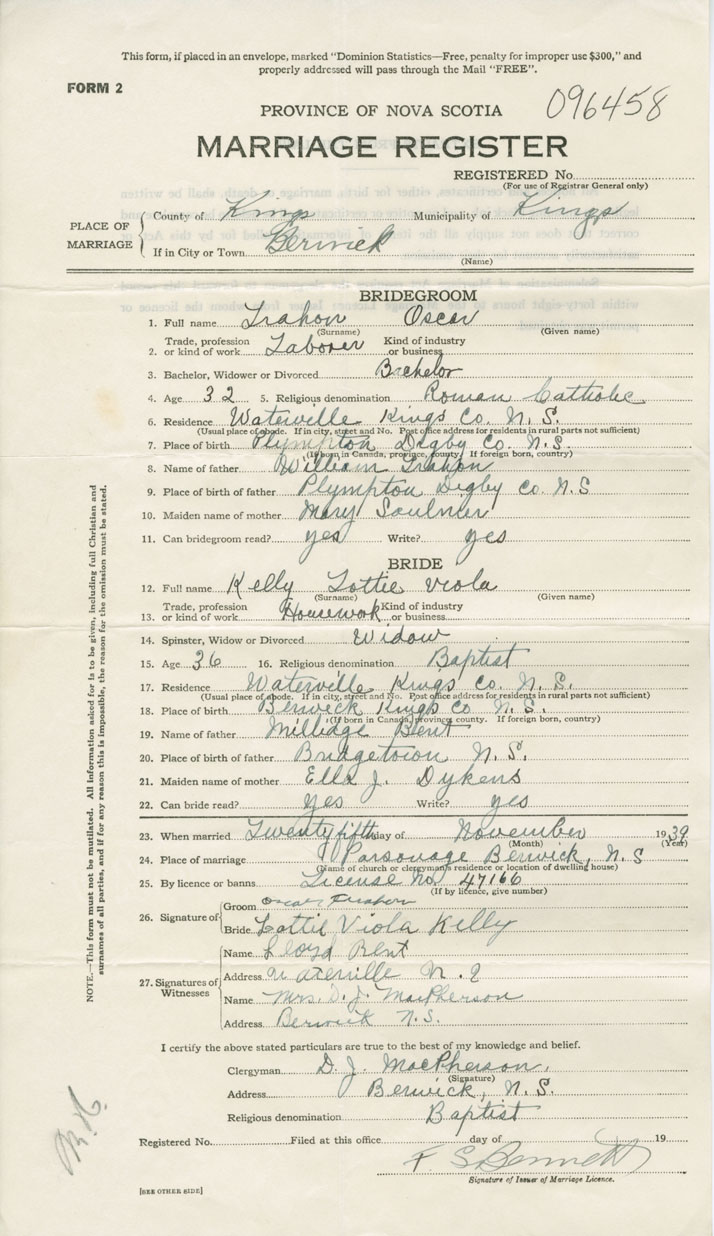 This form, if placed in an envelope, marked "Dominion Statistics—Free, penalty for improper use $300," and
properly addressed will pass through the Mail "FREE".
FORM 2
096458
PROVINCE OF NOVA SCOTIA
MARRIAGE REGISTER
REGISTERED No.
(For use of Registrar General only)
PLACE OF MARRIAGE
County of Kings Municipality of Kings
If in City or Town Berwick
(Name)
BRIDEGROOM
1. Full name Trahon Oscar
(Surname) (Given name)
2. Trade, profession or kind of work Laborer Kind of industry or business
3. Bachelor, Widower or Divorced Bachelor
4. Age 32 5. Religious denomination Roman Catholic
6. Residence Waterville Kings Co. N. S.
(Usual place of abode. If in city, street and No. Post office address for residents in rural parts not sufficient)
7. Place of birth Plympton Digby Co. N.S.
(If born in Canada, province, county. If foreign born, country)
8. Name of father William Trahon
9. Place of birth of father Plympton Digby Co. N.S
10. Maiden name of mother Mary Saulnier
11. Can bridegroom read? yes Write? yes
BRIDE
12. Full name Kelly Lottie Viola
(Surname) (Given name)
13. Trade, profession or kind of work Housework Kind of industry or business
14. Spinster, Widow or Divorced Widow
15. Age 36 16. Religious denomination Baptist
17. Residence Waterville Kings Co. N. S.
(Usual place of abode. If in city, street and No. Post office address for residents in rural parts not sufficient)
18. Place of birth Berwick Kings Co N. S.
(If born in Canada, province, county. If foreign born, country)
19. Name of father Millidge Bent
20. Place of birth of father Bridgetown N. S.
21. Maiden name of mother Ella J. Dykens
22. Can bride read? yes Write? yes
23. When married Twenty fifth day of November 1939
(Month) (Year)
24. Place of marriage Parsonage Berwick, N. S
(Name of church or clergyman's residence or location of dwelling house)
25. By licence or banns License No. 47166
(If by licence, give number)
26. Signature of
Groom Oscar Trahon
Bride Lottie Viola Kelly
27. Signatures of Witnesses
Name Lloyd Bent
Address Waterville N. S
Name Mrs. D. J. MacPherson
Address Berwick N.S.
I certify the above stated particulars are true to the best of my knowledge and belief.
Clergyman D. J. MacPherson.
(Signature)
Address Berwick, N. S.
Religious denomination Baptist
Registered No. Filed at this office day of 19
F S Bennett
Signature of Issuer of Marriage Licence.
[SEE OTHER SIDE]
NOTE.—This form must not be mutilated. All information asked for is to be given, including full Christian and
surnames of all parties, and if for any reason this is impossible, the reason for the omission must be stated.